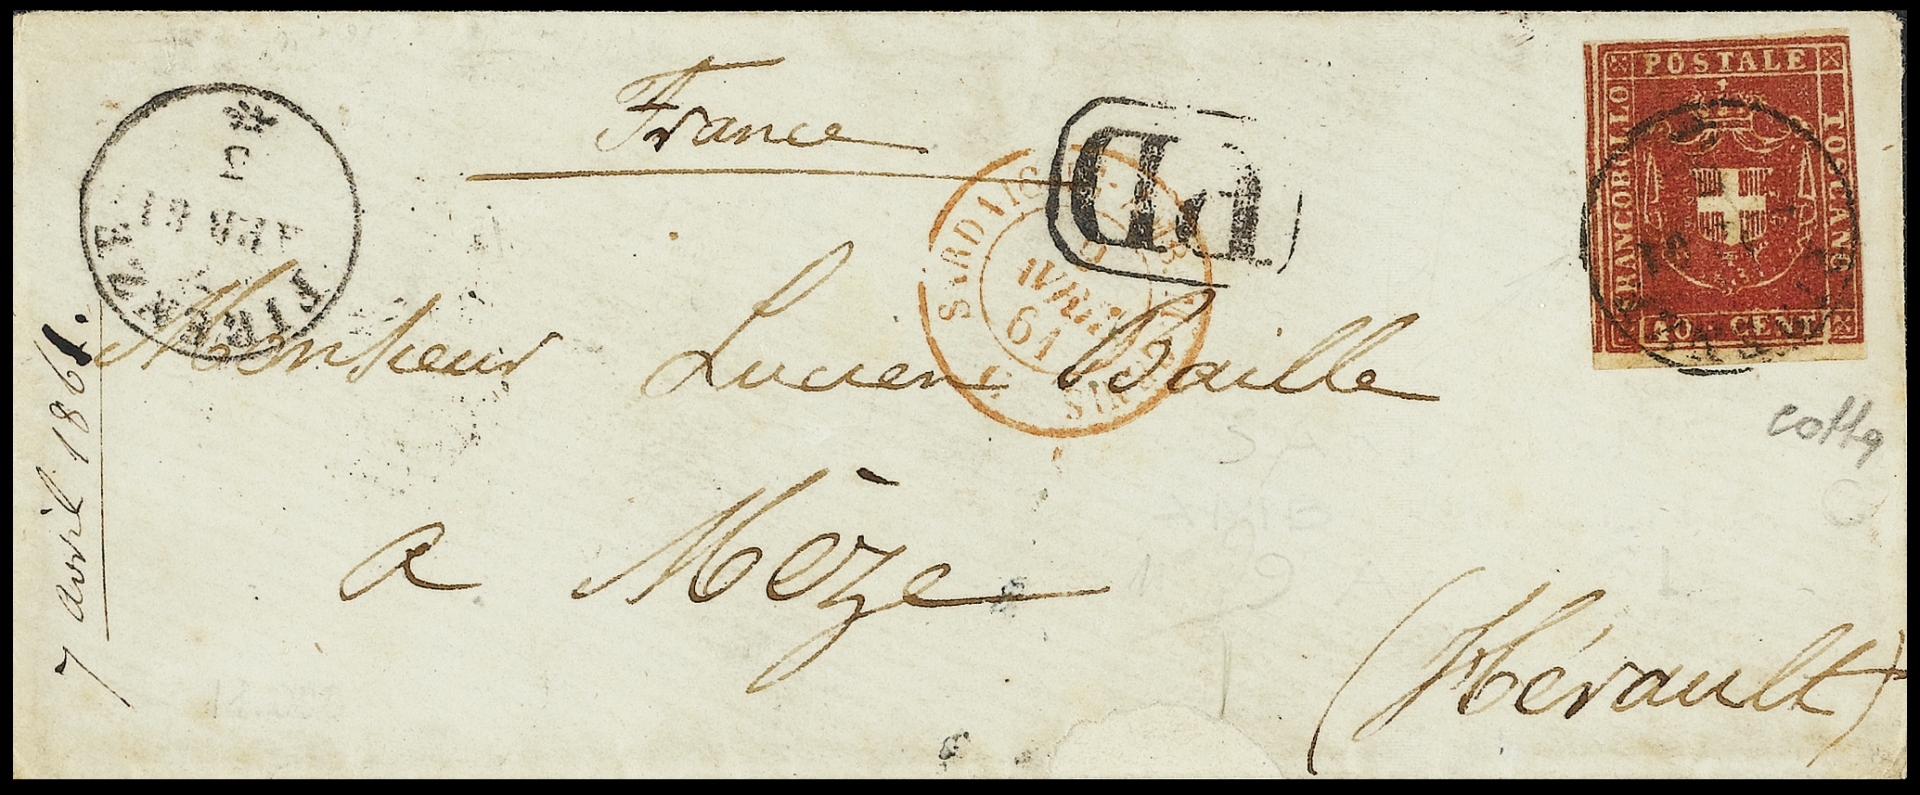 France
POSTALE
FRANCOBOLLO
TOSCANO
40 CENT
PD
FIRENZE
APR 61
SARDAIGNE
9
AVRIL
61
Monsieur Lucien Baille
a Mèze
(Hérault)
7 avril 1861.